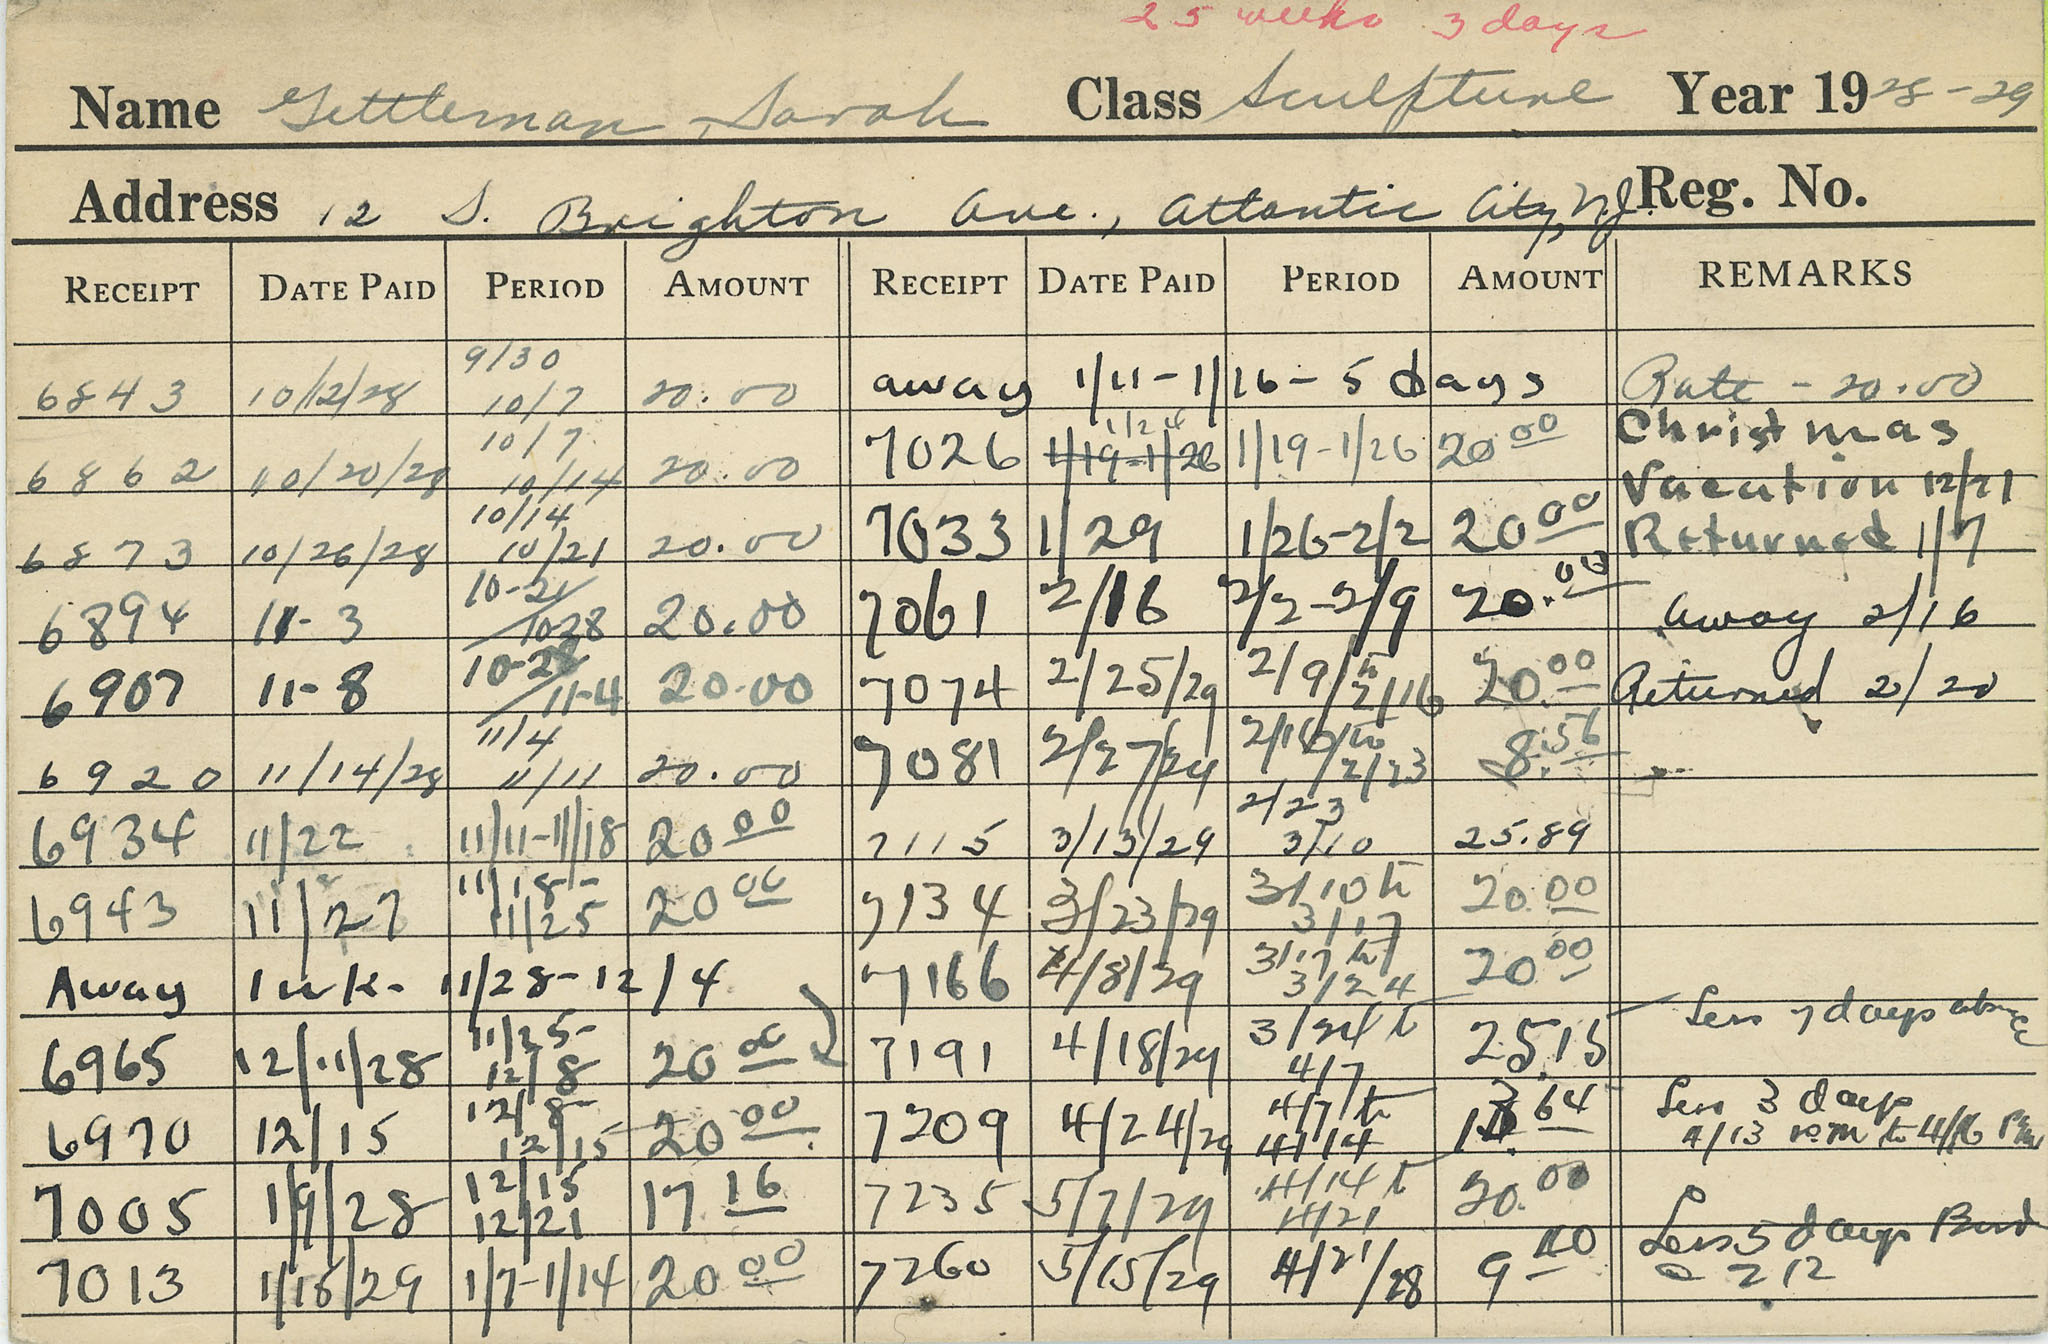 25 weeks 3 days
Name Gettleman, Sarah Class Sculpture Year 1928-29
Address 12 S. Brighton Ave., Atlantic City, N.J. Reg. No.
RECEIPT DATE PAID PERIOD AMOUNT RECEIPT DATE PAID PERIOD AMOUNT REMARKS
6843 10/12/28 9/30 10/7 20.00 away 1/11-1/16-5 days Rate - 20.00
6862 10/20/28 10/7 10/14 20.00 7026 1/19-1/26 1/24 1/19-1/26 20 00 Christmas
Vacation 12/21
6873 10/26/28 10/14 10/21 20.00 7033 1/29 1/26-2/2 20 00 Returned 1/7
6894 11-3 10-21/10-28 20.00 7061 2/16 2/2-2/9 20.00 Away 2/16
6907 11-8 10-28/11-4 20.00 7074 2/25/29 2/9 to 2/16 20.00 Returned 2/20
6920 11/14/28 11/4 11/11 20.00 7081 2/27/29 2/16 to 2/23 8.56
6934 11/22 11/11-11/18 20 00 7115 3/13/29 2/23 3/10 25.89
6943 11/27 11/18-11/25 20 00 7134 3/23/29 3/10 to 3/17 20.00
Away 1 wk- 11/28-12/4 7166 4/8/29 3/17 to 3/24 20 00
6965 12/11/28 11/25-12/8 20 00 7191 4/18/29 3/24 to 4/7 25.15 Less 7 days absence
6970 12/15 12/8-12/15 20 00 7209 4/24/29 4/7 to 4/14 64 Less 3 days
4/13 to 4/16
7005 1/9/28 12/15 12/21 17 16 7235 5/7/29 4/14 to 4/21 20.00
7013 1/15/29 1/7-1/14 20 00 7260 5/15/29 4/21/28 9 Less 5 days Board
@ 2 12